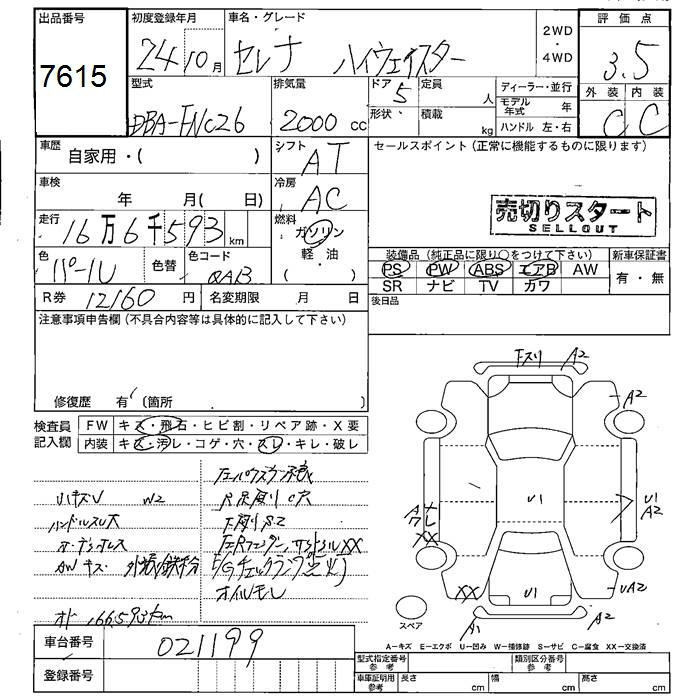 出品番号 初度登録年月 車名・グレード 2WD・4WD 評価点
7615 24 10月 セレナ ハイウェイスター 3.5
型式 排気量 ドア 5 定員 人 ディーラー・並行 外装 内装
DBA-FNC26 2000 cc 形状 積載 kg モデル年式 年 C C
ハンドル 左・右
車歴 自家用・( ) シフト AT セールスポイント (正常に機能するものに限ります)
車検 年 月( 日) 冷房 AC
売切りスタート
SELLOUT
走行 16万6千593km 燃料 ガソリン 軽・油 ( )
装備品 (純正品に限り○をつけて下さい) 新車保証書
色 パール 色替 色コード QAB
PS PW ABS エアB AW 有・無
SR ナビ TV カワ
R券 12160 円 名変期限 月 日 後日品
注意事項申告欄 (不具合内容等は具体的に記入して下さい)
修復歴 有 (箇所 )
検査員記入欄 FW キズ・飛石・ヒビ割・リペア跡・X要
内装 キズ・汚レ・コゲ・穴・スレ・キレ・破レ
W2
ハンドルスレ大
AWキズ
E/Gチェックランプ点灯
オイルモレ
オド 166,593km
Fスリ A2
A2
U1
U1
A2
XX
XX
U1
UA2
A1
A2
スペア
A-キズ E-エクボ U-凹み W-補修跡 S-サビ C-腐食 XX-交換済
車台番号 021199
登録番号
型式指定番号 参考 類別区分番号 参考
車庫証明用 参考 長さ cm 幅 cm 高さ cm